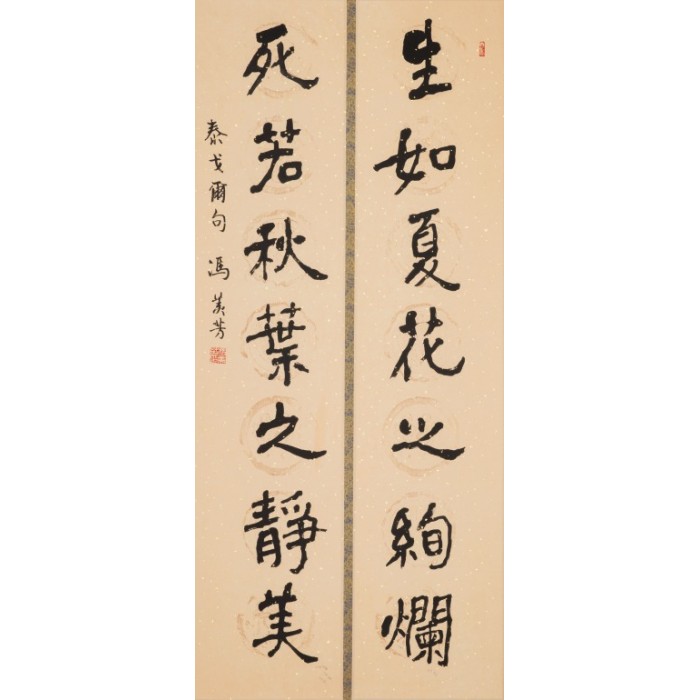 生如夏花之絢爛
死若秋葉之靜美
泰戈爾句 馮美芳